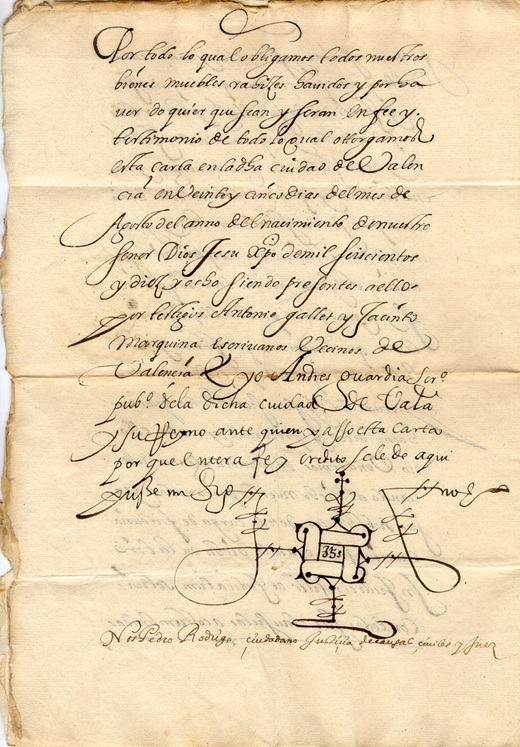 Por todo lo qual obligamos todos nuestros
bienes muebles rahizes havidos y por ha
ver do quier que sean y seran en fee y
testimonio de todo lo qual otorgamos
esta carta en la dha ciudad de Valen
cia en veinte y cinco dias del mes de
Agosto del anno del nacimiento de nuestro
señor Dios Jesu Xpo de mil seiscientos
y diez y ocho siendo presentes a ello
por testigos Antonio gallot y Jacinto
Marquina escrivanos vecinos de
Valencia E yo Andres guardia scr.º
pub.º de la dicha ciudad de Vala
y su Reyno ante quien passo esta carta
por que entera fe y credito se le de aqui
puse mi sig no
355
Nos Pedro Rodrigo, ciudadano Justicia de causas civiles y Juez